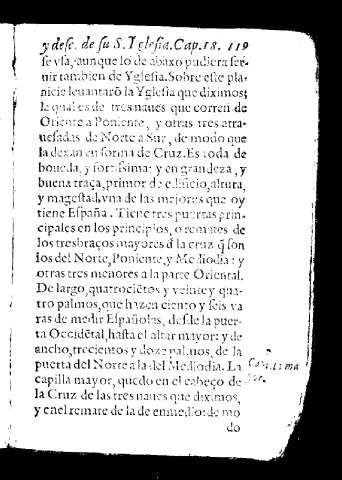 y desc. de su S. Yglesia. Cap. 18. 119
se vsa, aunque lo de abaxo pudiera ser-
uir tambien de Yglesia. Sobre este pla-
nicie leuantarõ la Yglesia que diximos;
la qual es de tres naues que corren de
Oriente a Poniente, y otras tres atra-
uesadas de Norte a Sur, de modo que
la dexan en forma de Cruz. Es toda de
boueda, y fortissima: y en grandeza, y
buena traça, primor de edificio, altura,
y magestad, vna de las mejores que oy
tiene España. Tiene tres puertas prin-
cipales en los principios, o remates de
los tres braços mayores d̃ la cruz q̃ son
los del Norte, Poniente, y Mediodia: y
otras tres menores a la parte Oriental.
De largo, quatrociẽtos y veinte y qua-
tro palmos, que hazen ciento y seis va
ras de medir Españolas, desde la puer-
ta Occidẽtal, hasta el altar mayor: y de
ancho, trecientos y doze palmos, de la
puerta del Norte a la del Mediodia. La
capilla mayor, quedo en el cabeço de
la Cruz de las tres naues que diximos,
y en el remate de la de enmedio: de mo
do